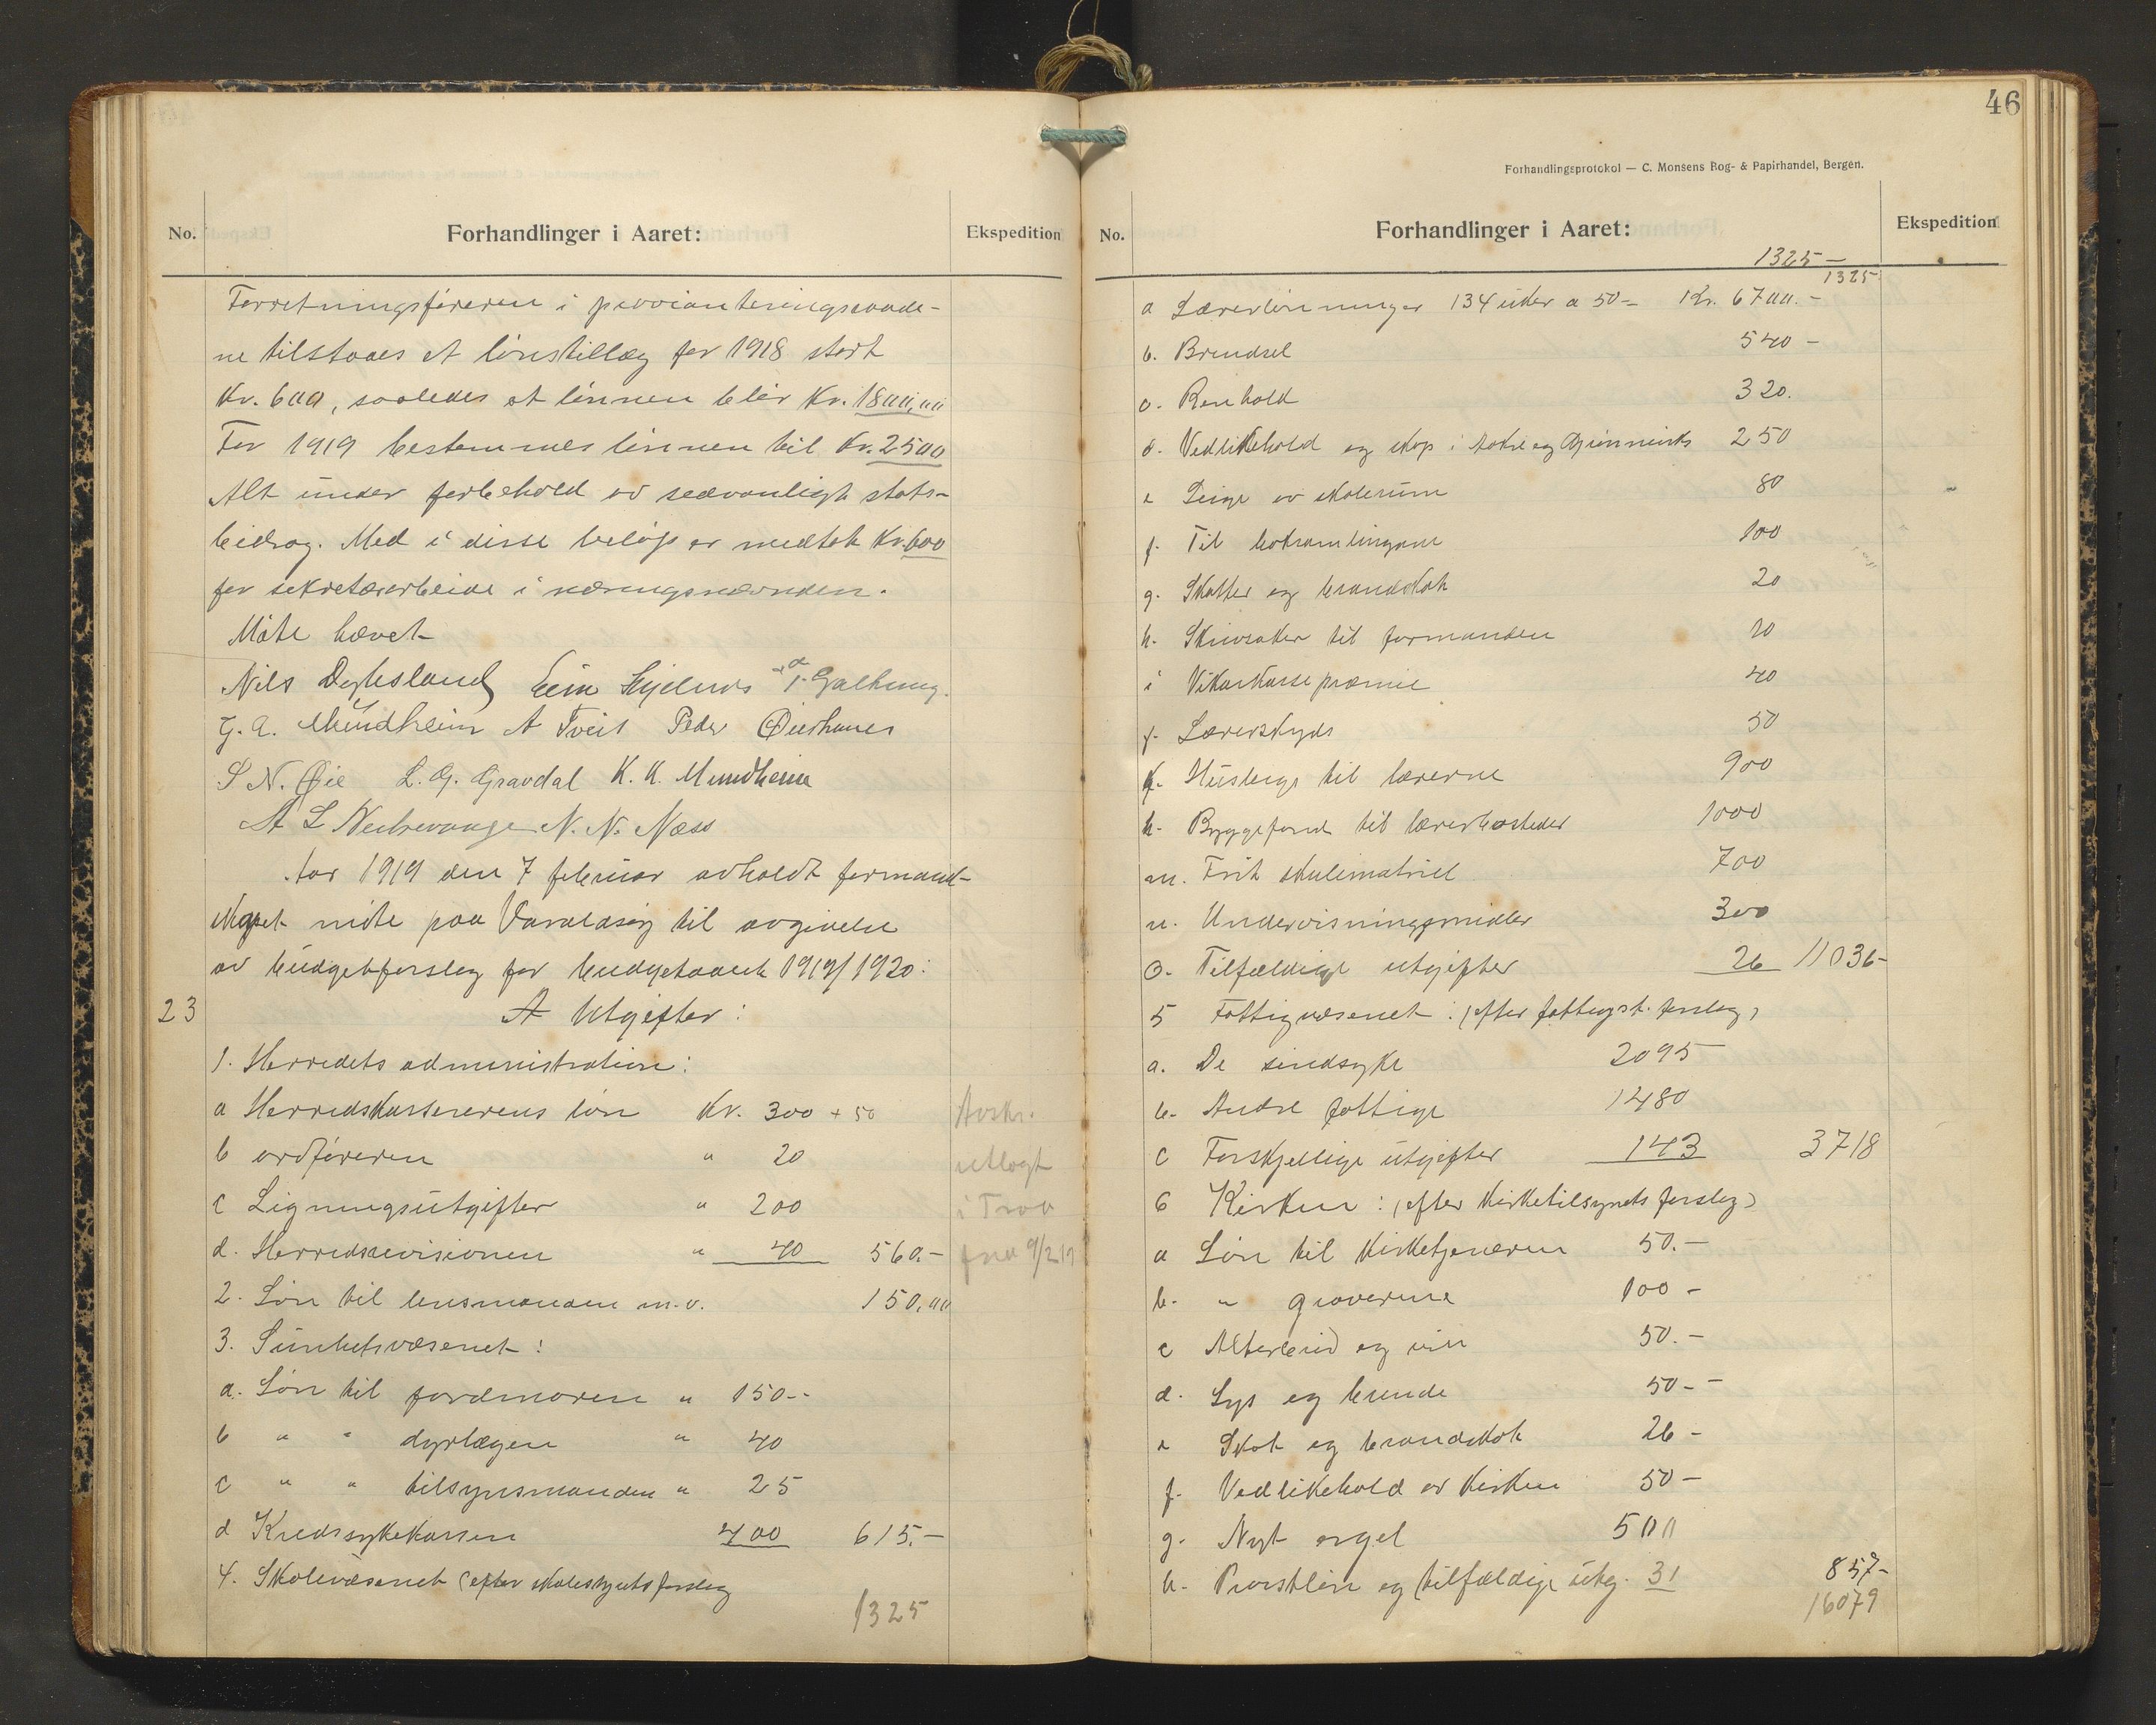 No.
Forhandlinger i Aaret:
Ekspedition
Forretningsføreren i provianteringsraade-
ne tilstaaes et lønstillæg for 1918 stort
Kr. 600, saaledes at lønnen blir Kr. 1800,00
For 1919 bestemmes lønnen til Kr. 2500
Alt under forbehold av sedvanligt stats-
bidrag. Med i disse beløp er medtat Kr. 600
for sekretærarbeide i næringsnævnden.
Møte hævet
Nils Dysland T. Galtung.
G. A. Mundheim A Tveit Peder Øierhavn
S N. Øie L. G. Gravdal K. K. Mundheim
A L N. N. Næss
Aar 1919 den 7 februar avholdt formand-
skapet møte paa Varaldsøy til avgivelse
av budgetforslag for budgetaaret 1919/1920:
23 A Utgifter:
1. Herredets administration:
a Herredskassererens løn Kr. 300 + 50
b ordføreren " 20
c Ligningsutgifter " 200
d. Herredsrevisionen " 40 560.-
Avskr.
utlagt
i
fra 9/2 19
2. Løn til lensmanden m.v. 150,00
3. Sunhetsvæsenet:
a. Løn til jordmoren " 150--
b " " dyrlægen " 40
c " " tilsynsmanden " 25
d Kredssykekassen 400 615.-
4. Skolevæsenet (efter skolestyrets forslag
1325
46
Forhandlingsprotokol — C. Monsens Bog- & Papirhandel, Bergen.
No.
Forhandlinger i Aaret:
Ekspedition
1325-
1325
a Lærerlønninger 134 uker a 50- Kr. 6700.-
b. Brendsel 540 -
c. Renhold 320.
d. Vedlikehold og skap i og 250
e Leige av skolerum 80
f. Til boksamlingane 100
g. Skatter og brandskat 20
h. Skrivsaker til formanden 10
i Vikarkassepræmie 40
j. Lærerskyds 50
k. Husleige til lærerne 900
l. Byggefond til lærerbosteder 1000
m. Frit skulematriel 700
n. Undervisningsmidler 300
o. Tilfældige utgifter 26 11036-
5 Fattigvæsenet: (efter fattigst. forslag)
a. De sindsyke 2095
b. Andre fattige 1480
c Forskjellige utgifter 143 3718
6 Kirken: (efter kirketilsynets forslag)
a Løn til kirketjeneren 50.-
b. " graverne 100 -
c Alterbrød og vin 50.-
d. Lys og brende 50--
e Skat og brandskat 26 -
f. Vedlikehold av kirken 50 -
g. Nyt orgel 500
h. Provstløn og tilfældige utg. 31 857-
16079